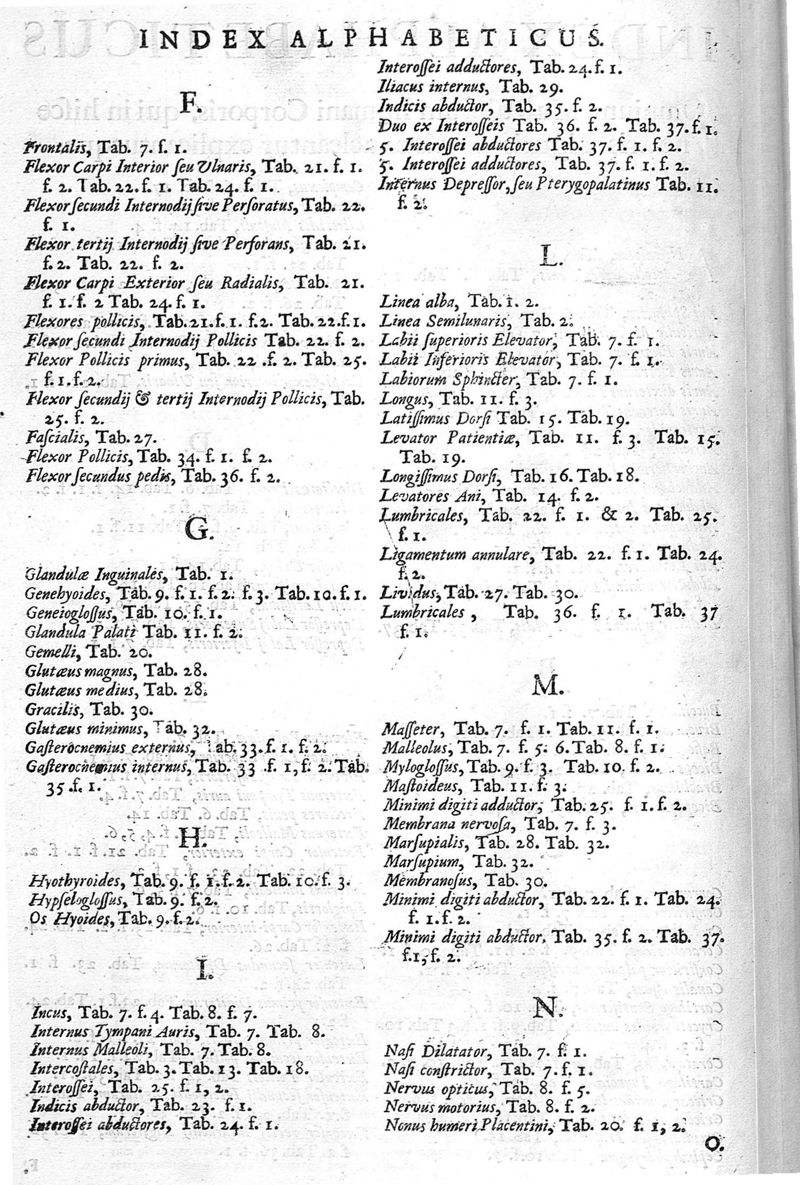 INDEX ALPHABETICUS.
F.
Frontalis, Tab. 7. f. 1.
Flexor Carpi Interior ſeu Ulnaris, Tab. 21. f. 1.
f. 2. Tab. 22. f. 1. Tab. 24. f. 1.
Flexor ſecundi Internodij ſive Perforatus, Tab. 22.
f. 1.
Flexor tertij Internodij ſive Perforans, Tab. 21.
f. 2. Tab. 22. f. 2.
Flexor Carpi Exterior ſeu Radialis, Tab. 21.
f. 1. f. 2 Tab. 24. f. 1.
Flexores pollicis, Tab. 21. f. 1. f. 2. Tab. 22. f. 1.
Flexor ſecundi Internodij Pollicis Tab. 22. f. 2.
Flexor Pollicis primus, Tab. 22 .f. 2. Tab. 25.
f. 1. f. 2.
Flexor ſecundij & tertij Internodij Pollicis, Tab.
25. f. 2.
Faſcialis, Tab. 27.
Flexor Pollicis, Tab. 34. f. 1. f. 2.
Flexor ſecundus pedis, Tab. 36. f. 2.
G.
Glandulæ Inguinales, Tab. 1.
Genehyoides, Tab. 9. f. 1. f. 2. f. 3. Tab. 10. f. 1.
Geneiogloſſus, Tab. 10. f. 1.
Glandula Palati Tab. 11. f. 2.
Gemelli, Tab. 20.
Glutæus magnus, Tab. 28.
Glutæus medius, Tab. 28.
Gracilis, Tab. 30.
Glutæus minimus, Tab. 32.
Gaſterocnemius externus, Tab. 33. f. 1. f. 2.
Gaſterocnemius internus, Tab. 33 .f. 1, f. 2. Tab.
35. f. 1.
H.
Hyothyroides, Tab. 9. f. 1. f. 2. Tab. 10. f. 3.
Hypſelogloſſus, Tab. 9. f. 2.
Os Hyoides, Tab. 9. f. 2.
I.
Incus, Tab. 7. f. 4. Tab. 8. f. 7.
Internus Tympani Auris, Tab. 7. Tab. 8.
Internus Malleoli, Tab. 7. Tab. 8.
Intercoſtales, Tab. 3. Tab. 13. Tab. 18.
Interoſſei, Tab. 25. f. 1, 2.
Indicis abductor, Tab. 23. f. 1.
Interoſſei abductores, Tab. 24. f. 1.
Interoſſei adductores, Tab. 24. f. 1.
Iliacus internus, Tab. 29.
Indicis abductor, Tab. 35. f. 2.
Duo ex Interoſſeis Tab. 36. f. 2. Tab. 37. f. 1.
5. Interoſſei abductores Tab. 37. f. 1. f. 2.
5. Interoſſei adductores, Tab. 37. f. 1. f. 2.
Internus Depreſſor, ſeu Pterygopalatinus Tab. 11.
f. 2.
L.
Linea alba, Tab. 1. 2.
Linea Semilunaris, Tab. 2.
Labii ſuperioris Elevator, Tab. 7. f. 1.
Labii Inferioris Elevator, Tab. 7. f. 1.
Labiorum Sphincter, Tab. 7. f. 1.
Longus, Tab. 11. f. 3.
Latiſſimus Dorſi Tab. 15. Tab. 19.
Levator Patientiæ, Tab. 11. f. 3. Tab. 15.
Tab. 19.
Longiſſimus Dorſi, Tab. 16. Tab. 18.
Levatores Ani, Tab. 14. f. 2.
Lumbricales, Tab. 22. f. 1. & 2. Tab. 25.
f. 1.
Ligamentum annulare, Tab. 22. f. 1. Tab. 24.
f. 2.
Lividus, Tab. 27. Tab. 30.
Lumbricales , Tab. 36. f. 1. Tab. 37
f. 1.
M.
Maſſeter, Tab. 7. f. 1. Tab. 11. f. 1.
Malleolus, Tab. 7. f. 5. 6. Tab. 8. f. 1.
Mylogloſſus, Tab. 9. f. 3. Tab. 10. f. 2.
Maſtoideus, Tab. 11. f. 3.
Minimi digiti adductor, Tab. 25. f. 1. f. 2.
Membrana nervoſa, Tab. 7. f. 3.
Marſupialis, Tab. 28. Tab. 32.
Marſupium, Tab. 32.
Membranoſus, Tab. 30.
Minimi digiti abductor, Tab. 22. f. 1. Tab. 24.
f. 1. f. 2.
Minimi digiti abductor. Tab. 35. f. 2. Tab. 37.
f. 1, f. 2.
N.
Naſi Dilatator, Tab. 7. f. 1.
Naſi conſtrictor, Tab. 7. f. 1.
Nervus opticus, Tab. 8. f. 5.
Nervus motorius, Tab. 8. f. 2.
Nonus humeri Placentini, Tab. 20. f. 1, 2.
O.